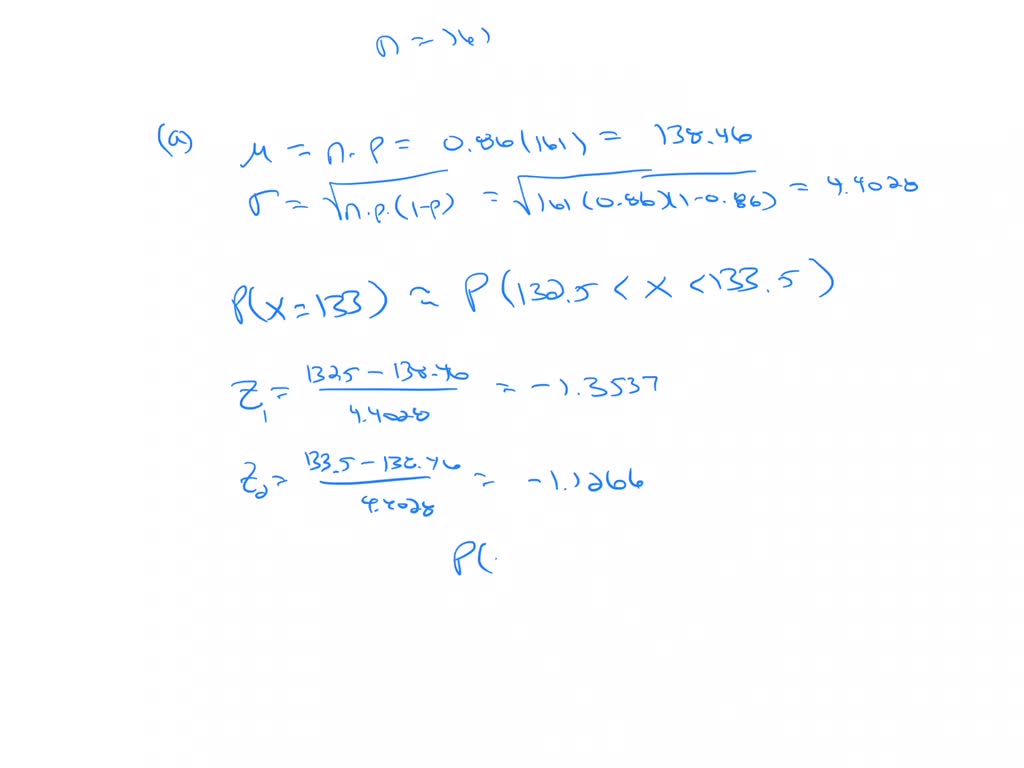 n = 161
(a) μ = n. p = 0.86(161) = 138.46
σ = √n.p.(1-p) = √161(0.86)(1-0.86) = 4.4028
P(X=133) ≈ P(132.5 < X < 133.5)
Z₁ = 132.5 - 138.46 / 4.4028 = -1.3537
Z₂ = 133.5 - 138.46 / 4.4028 = -1.1266
P(